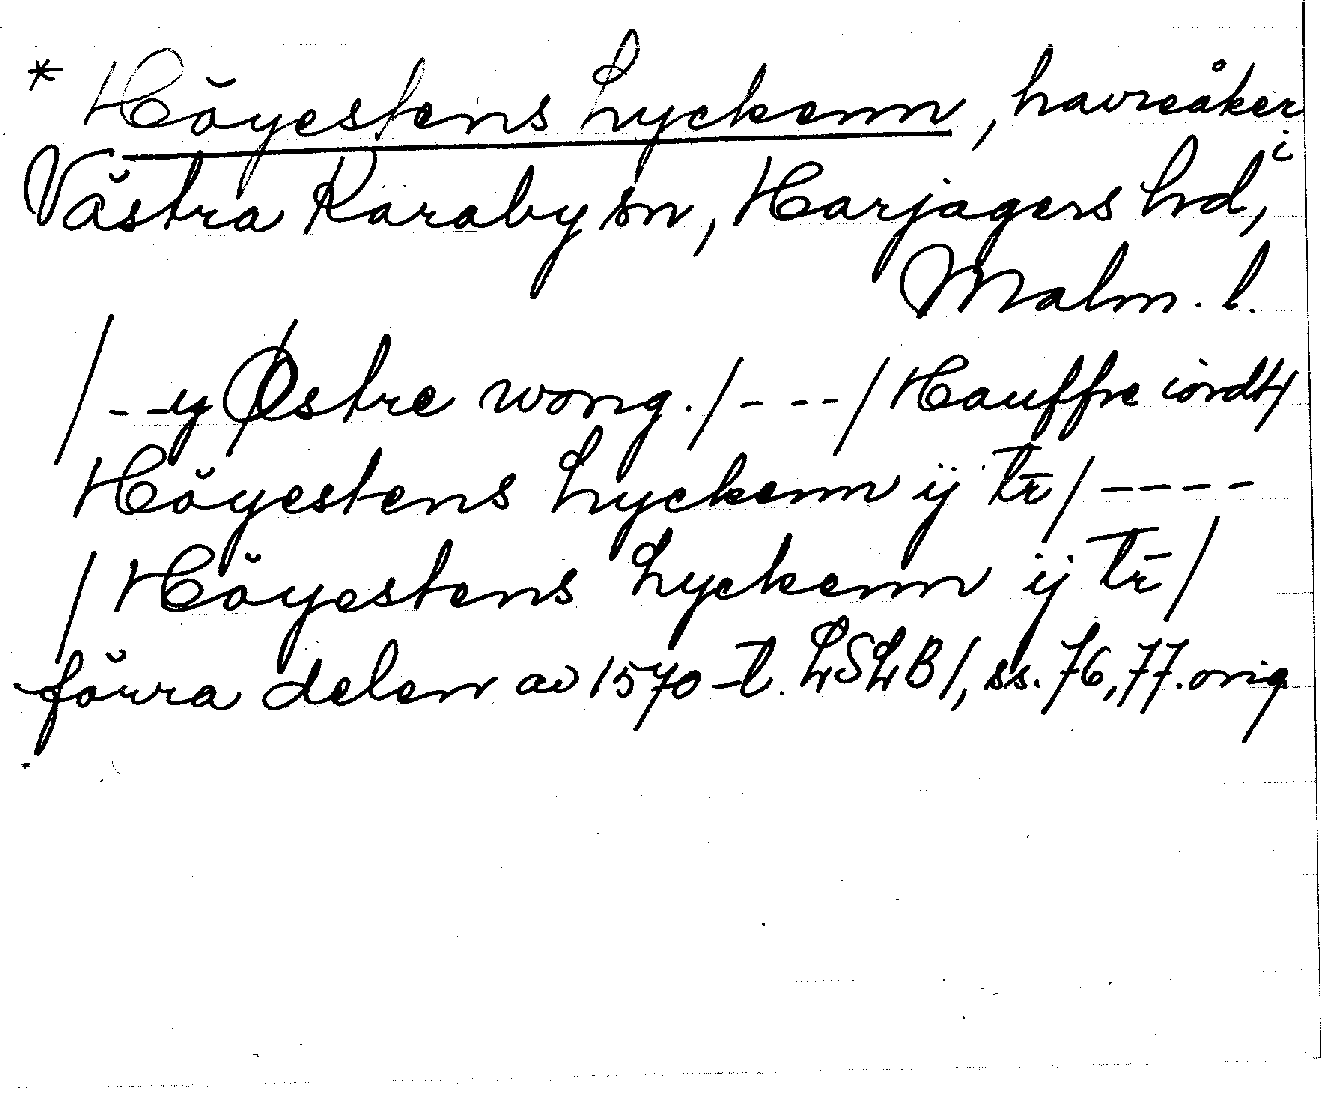 * Höyestens Lyckenn, havreåker i
Västra Karaby sn, Harjagers hd,
Malm. l.
/ - - y Østre wong. / - - - / Hauffre iordt /
Höyestens Lyckenn ij tr̄ / - - - -
/ Höyestens Lyckenn ij tr̄ /
förra delen av 1570-t. LSLB 1, ss. 76, 77. orig